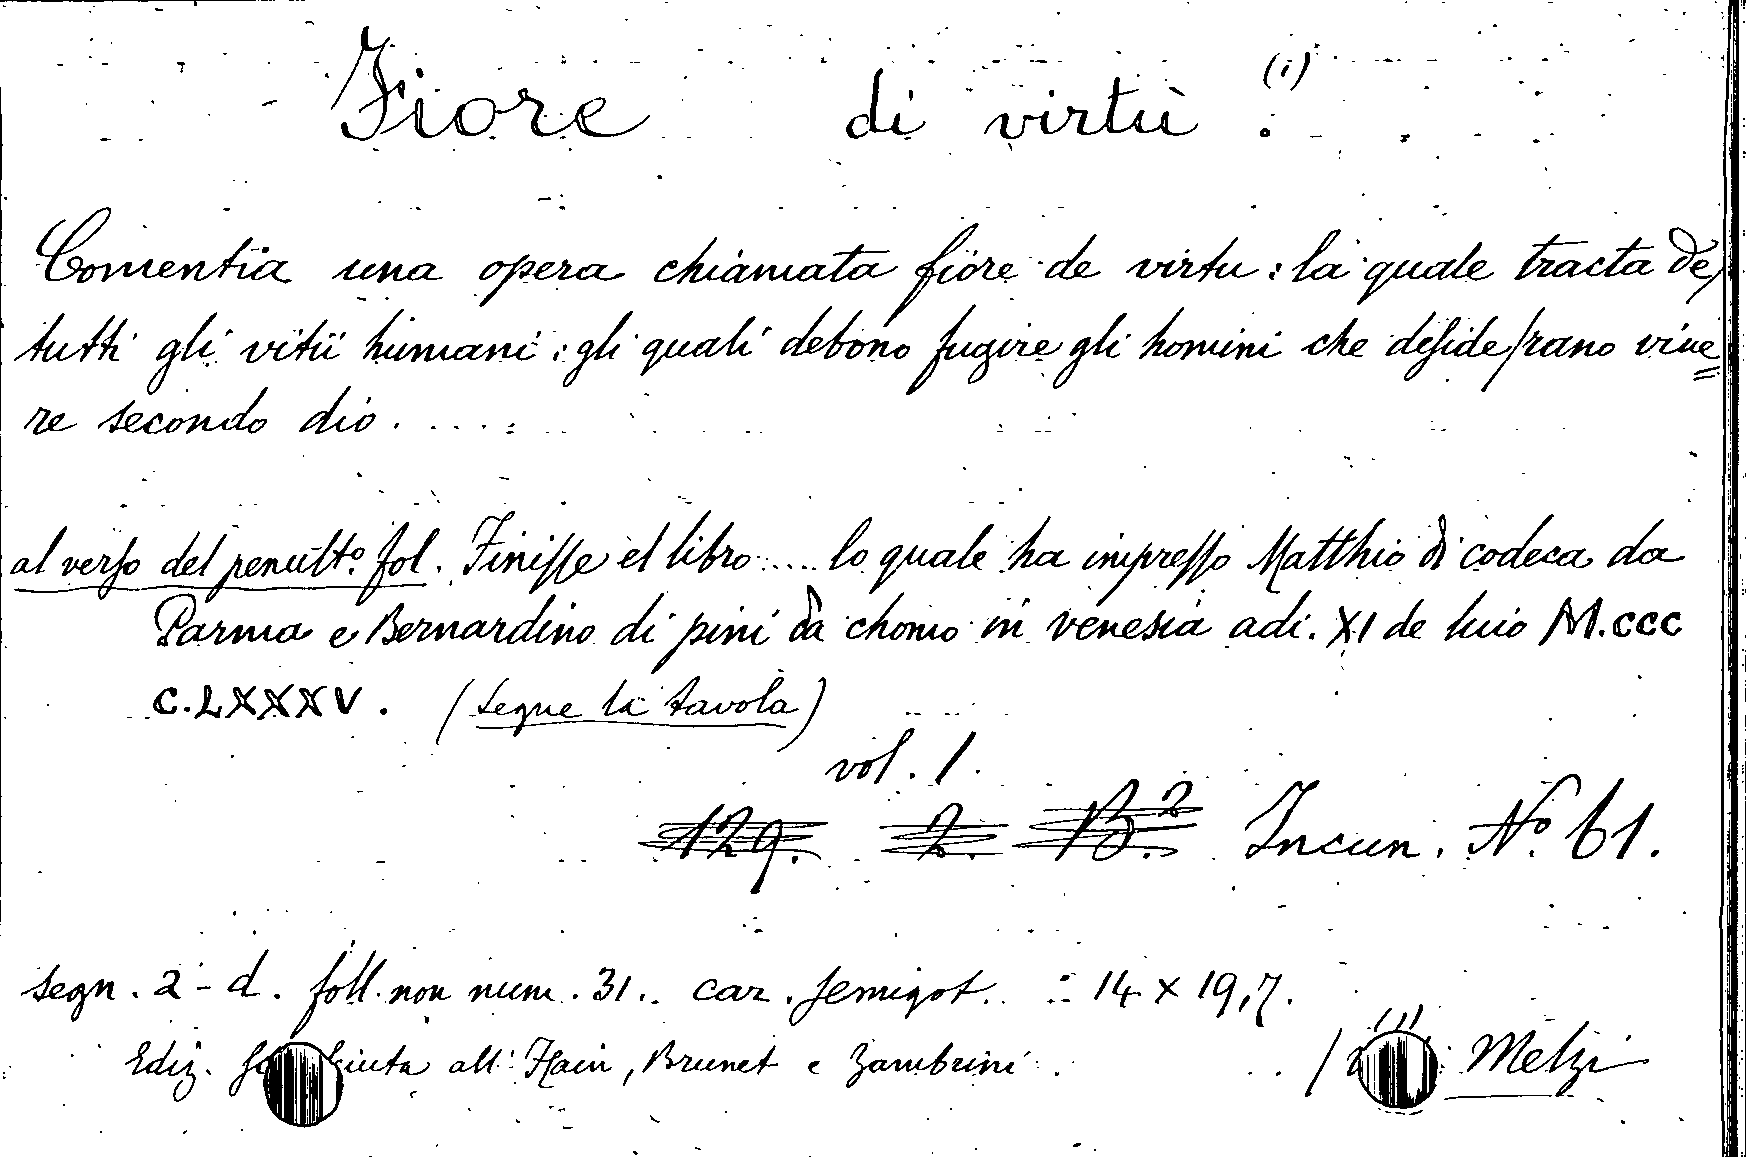 Fiore di virtù. (1)
Comentia una opera chiamata fiore de virtu: la quale tracta de/
tutti gli vitii humani: gli quali debono fugire gli homini che deside/rano viue
re secondo dio.....
al verso del penult.º fol. Finisse el libro..... lo quale ha impresso Matthio di codeca da
Parma e Bernardino di pini da chomo in venesia adi. XI de luio M.ccc
C.LXXXV. (segue la tavola)
vol. 1.
129. 2. B.² Incun. Nº 61.
segn. a-d. foll. non num. 31. car. semigot. : 14 x 19,7.
Ediz. all' Hain, Brunet e Zambrini.
(1) Melzi